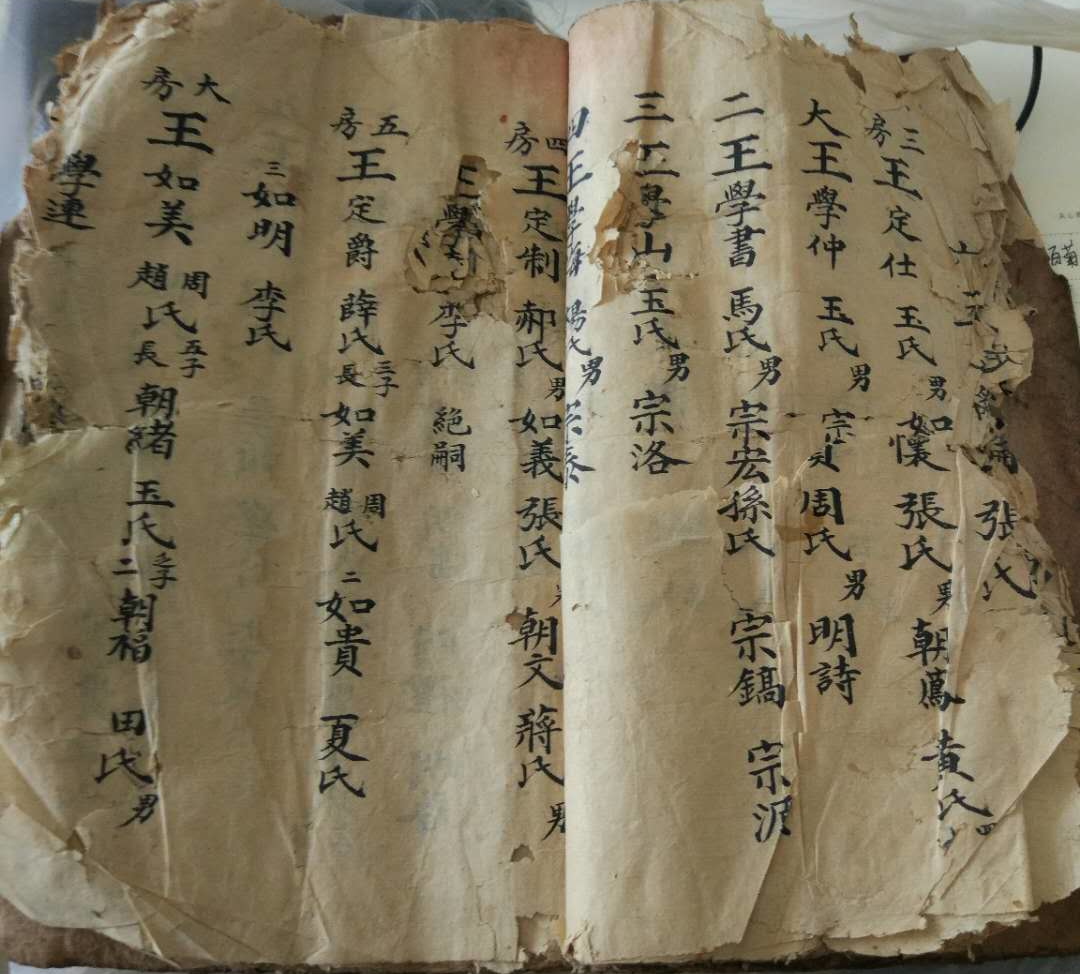 張氏
三房王定仕玉氏男如懷張氏男朝鳳黃氏四
大王學仲玉氏男宗周氏男明詩
二王學書馬氏男宗宏孫氏宗鎬宗派
三王學山玉氏男宗洛
王學楊氏男宗泰
四房王定制郝氏男如義張氏朝文蔣氏男
王學李氏絕嗣
五房王定爵薛氏三子長如美周趙氏二如貴夏氏
三如明李氏
大房王如美周趙氏五子長朝緒玉氏之子二朝福田氏男
學連